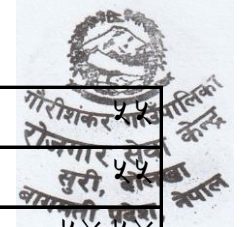 गौरीशंकर गाउँपालिका
५५
रोजगार सेवा केन्द्र
५५
सुरी, दोलखा
बागमती प्रदेश, नेपाल